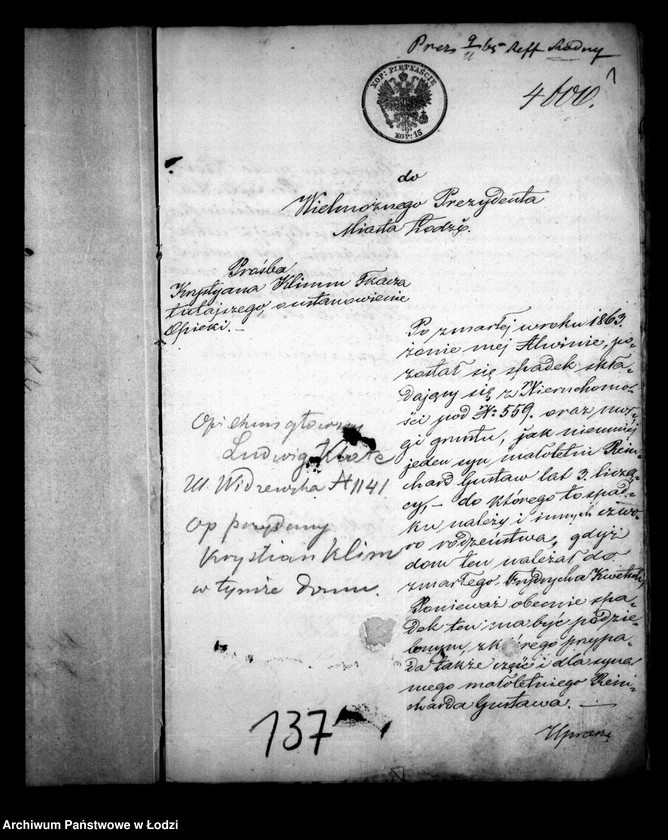 Prez 9/11 65 Reff Radny
1
4600.
KOP: PIĘTNAŚCIE
KOP: 15
do
Wielmożnego Prezydenta
Miasta Łodzi.
Prośba
Krystyana Klimm Tkacza
tutajszego, o ustanowienie
Opieki. —
Po zmarłej w roku 1863.
żonie mej Alwinie, po-
został się spadek skła-
dający się z Nieruchomo-
ści pod No 559. oraz mor-
gi gruntu, jak niemniej
jeden syn małoletni Rein-
chard Gustaw lat 3. liczą-
cy, — do którego to spad-
ku należy i innych czwo-
ro rodzeństwa, gdyż
dom ten należał do
zmarłego Frydrycha
Ponieważ obecnie spa-
dek ten ma być podzie-
lonym, z którego przypa-
da także część i dla syna
mego małoletniego Rein-
charda Gustawa. —
Upraszа
Opiekun główny
Ludwig
Ul. Widzewska No 1141
Op przydany
Krystian Klim
w tymże domu.
137
Archiwum Państwowe w Łodzi